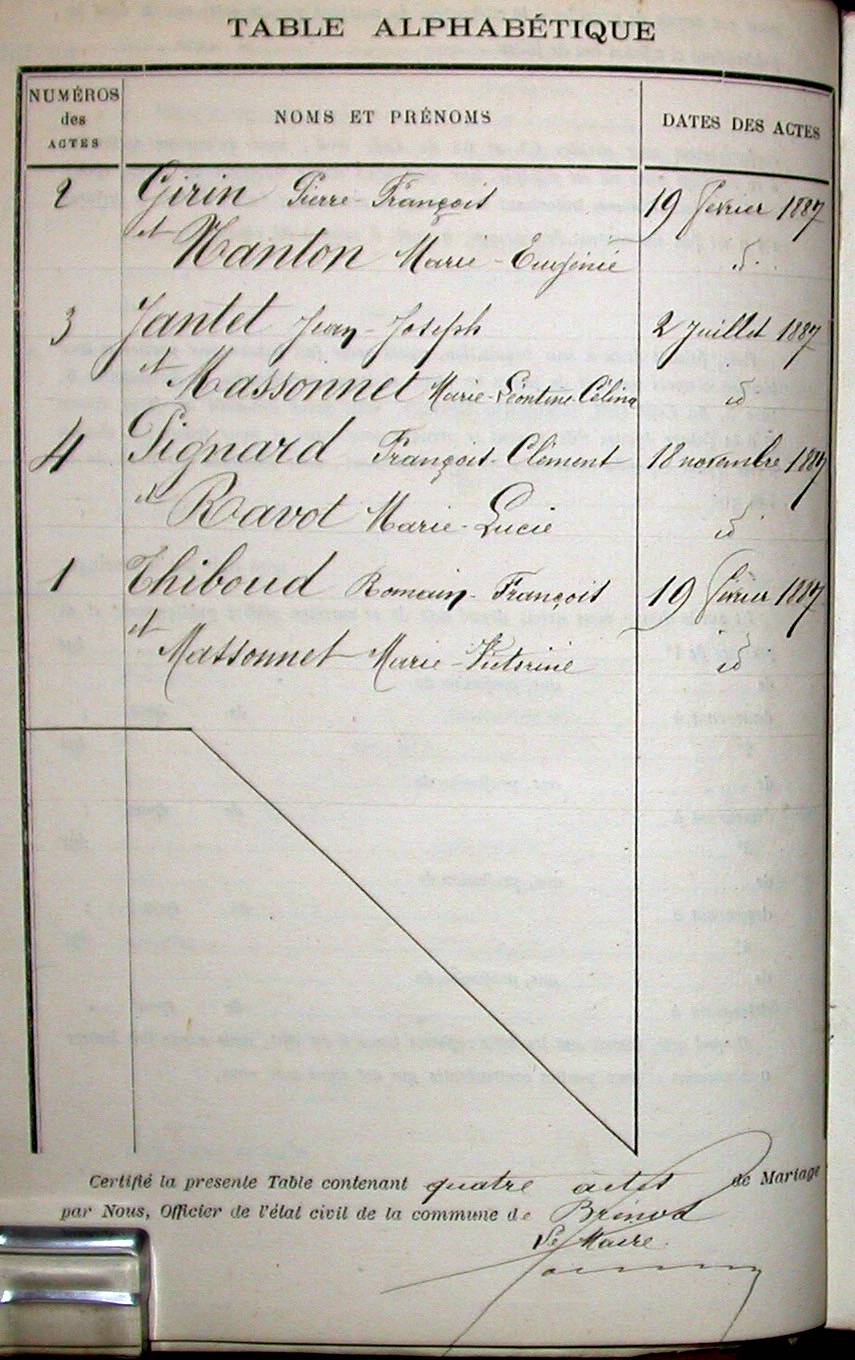 TABLE ALPHABÉTIQUE
NUMÉROS des ACTES NOMS ET PRÉNOMS DATES DES ACTES
2 Girin Pierre-François 19 février 1887
et Nanton Marie-Eugénie id.
3 Jantet Jean-Joseph 2 juillet 1887
et Massonnet Marie-Léontine-Célina id
4 Pignard François-Clément 18 novembre 1887
et Ravot Marie-Lucie id
1 Thiboud Romain-François 19 février 1887
et Massonnet Marie-Victorine id
Certifié la presente Table contenant quatre actes de Mariage
par Nous, Officier de l'état civil de la commune de Brénod
Le Maire